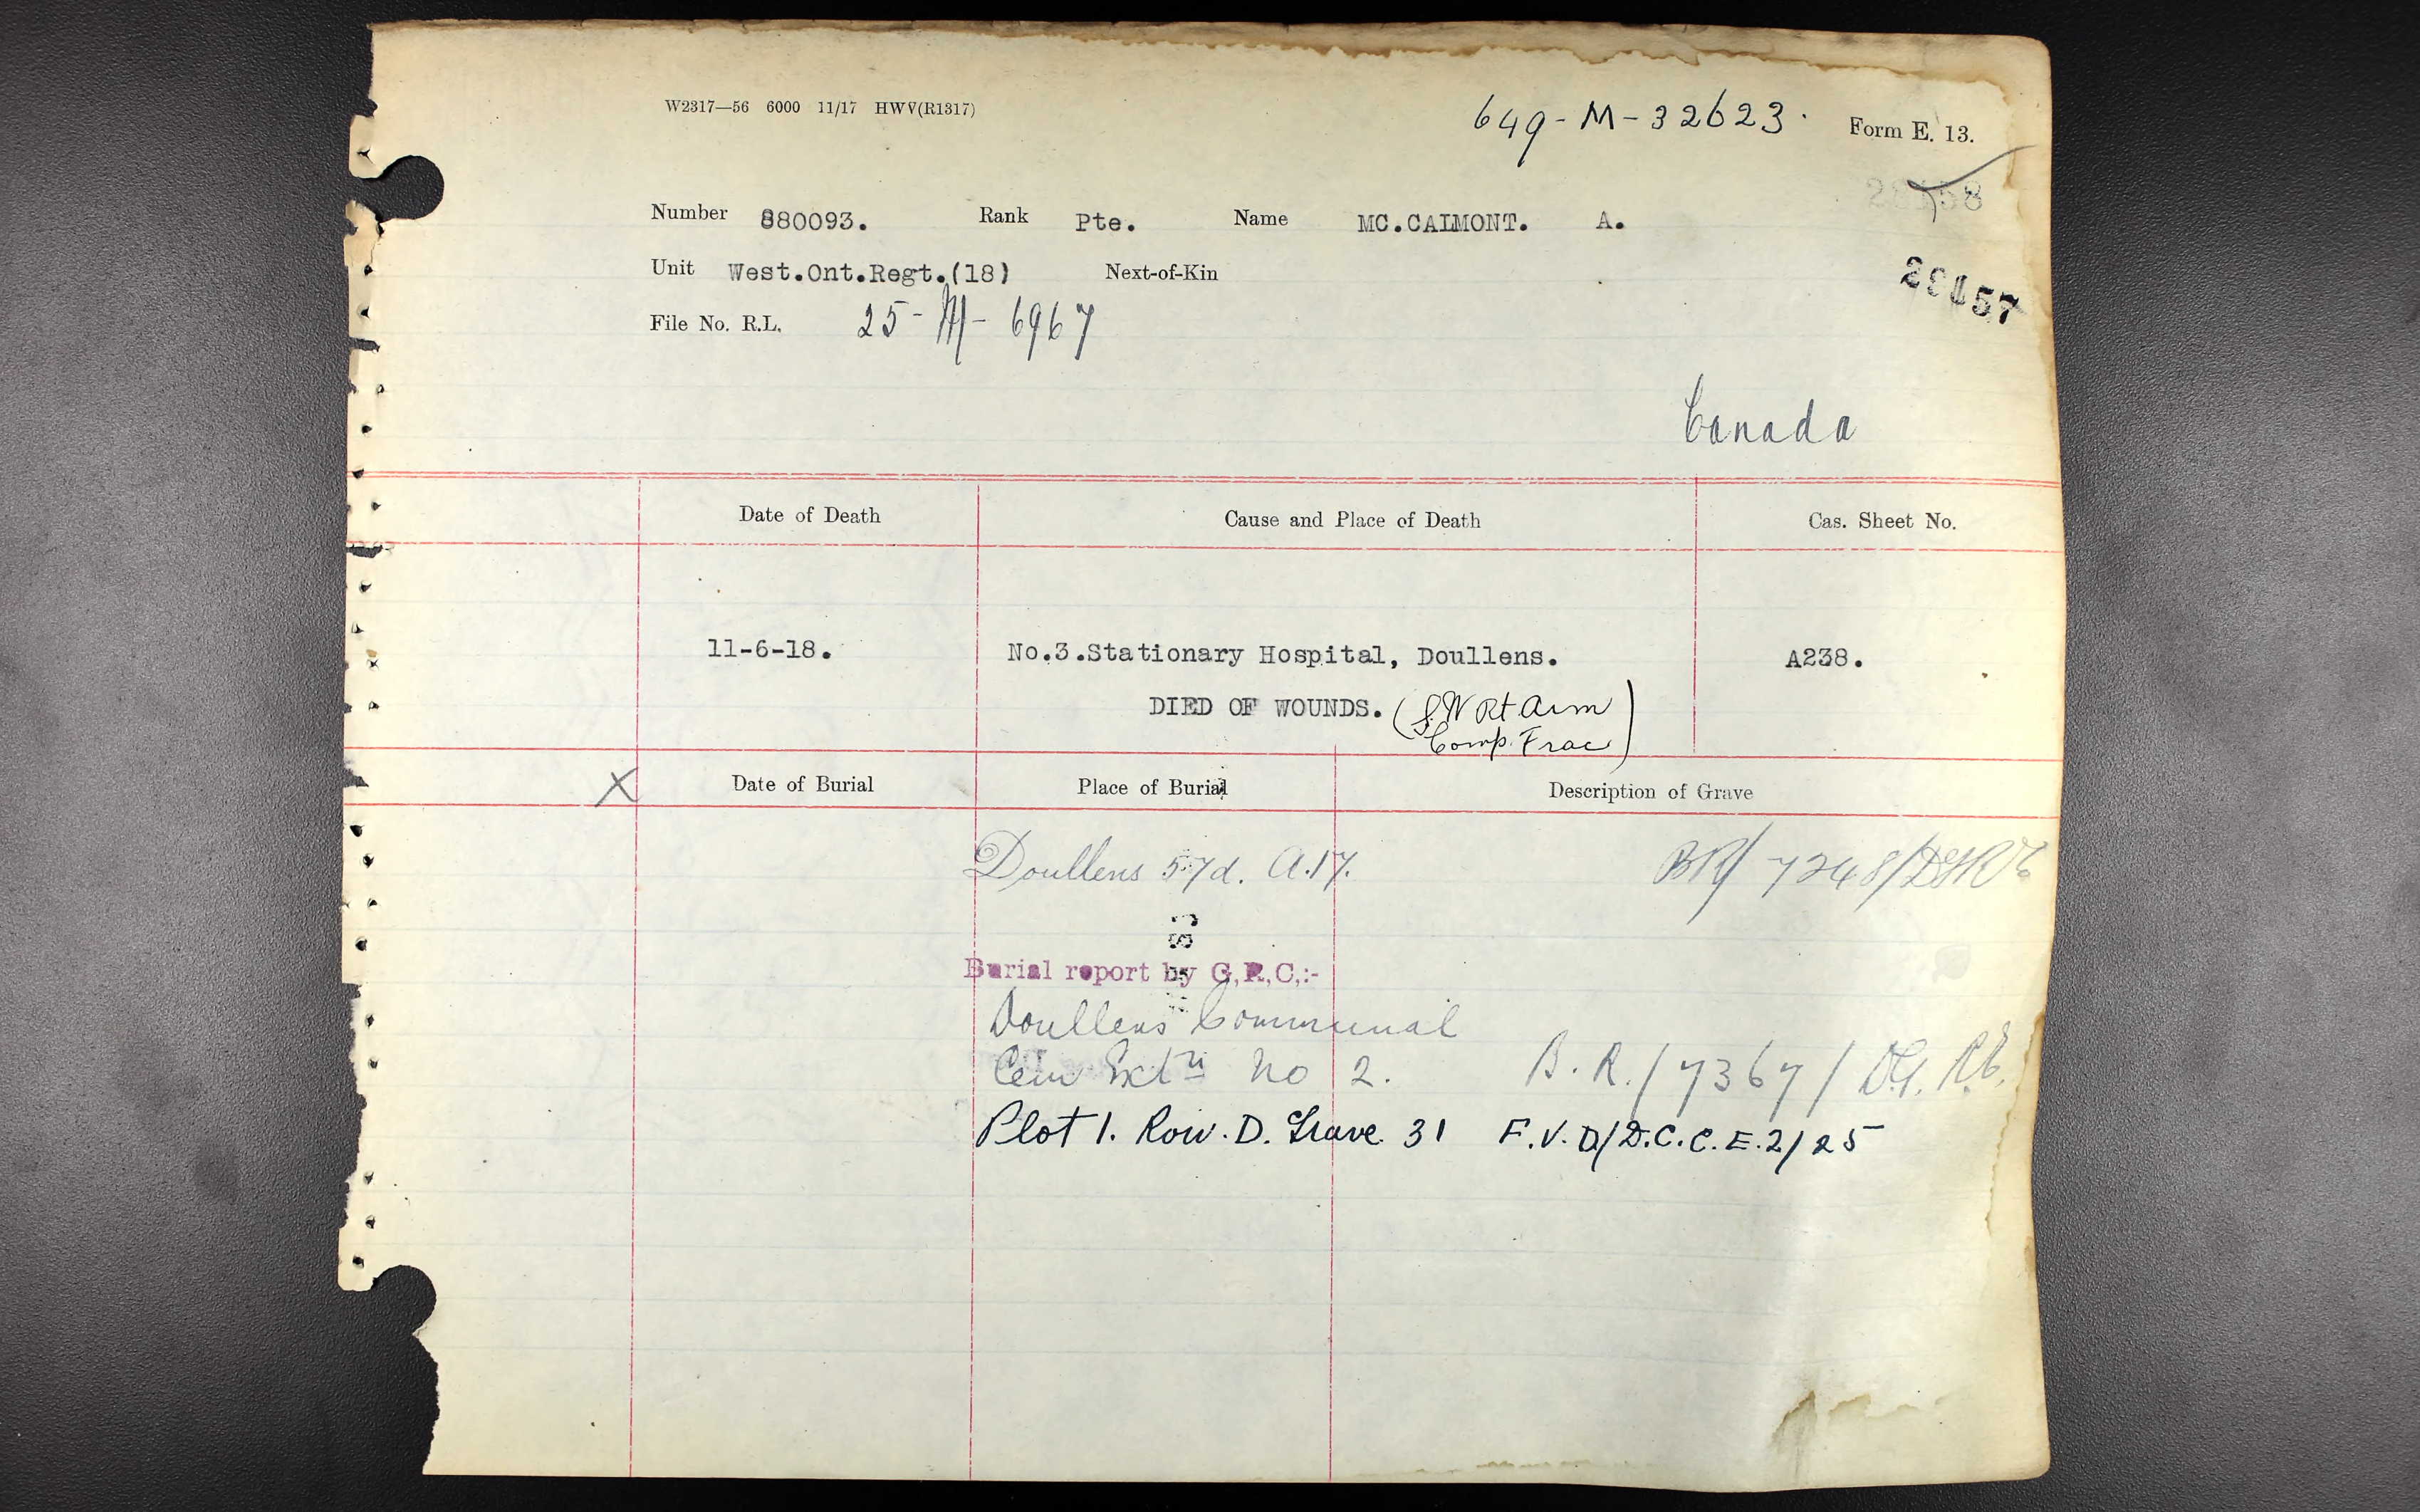 W2317—56 6000 11/17 HWV(R1317)
649-M-32623. Form E. 13.
Number 880093. Rank Pte. Name MC.CALMONT. A.
Unit West.Ont.Regt.(18) Next-of-Kin
File No. R.L. 25-M-6967
Canada
Date of Death Cause and Place of Death Cas. Sheet No.
11-6-18. No.3.Stationary Hospital, Doullens. A238.
DIED OF WOUNDS. (S.W Rt Arm
Comp. Frac)
X Date of Burial Place of Burial Description of Grave
Doullens 57d. A.17. BR/7248/DGR&E
Burial report by G,R,C,:-
Doullens Communal
Cem Extn No 2. B.R./7367/D.G.R.E.
Plot 1. Row. D. Grave 31 F.V.D/D.C.C.E.2/25